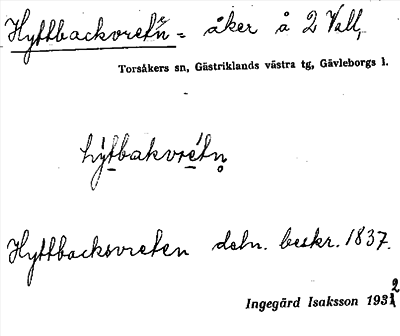 Hyttbackvretn = åker å 2 Vall,
Torsåkers sn, Gästriklands västra tg, Gävleborgs l.
hy̆tbakvrétn̥
Hyttbacksvreten deln. beskr. 1837.
Ingegärd Isaksson 1932